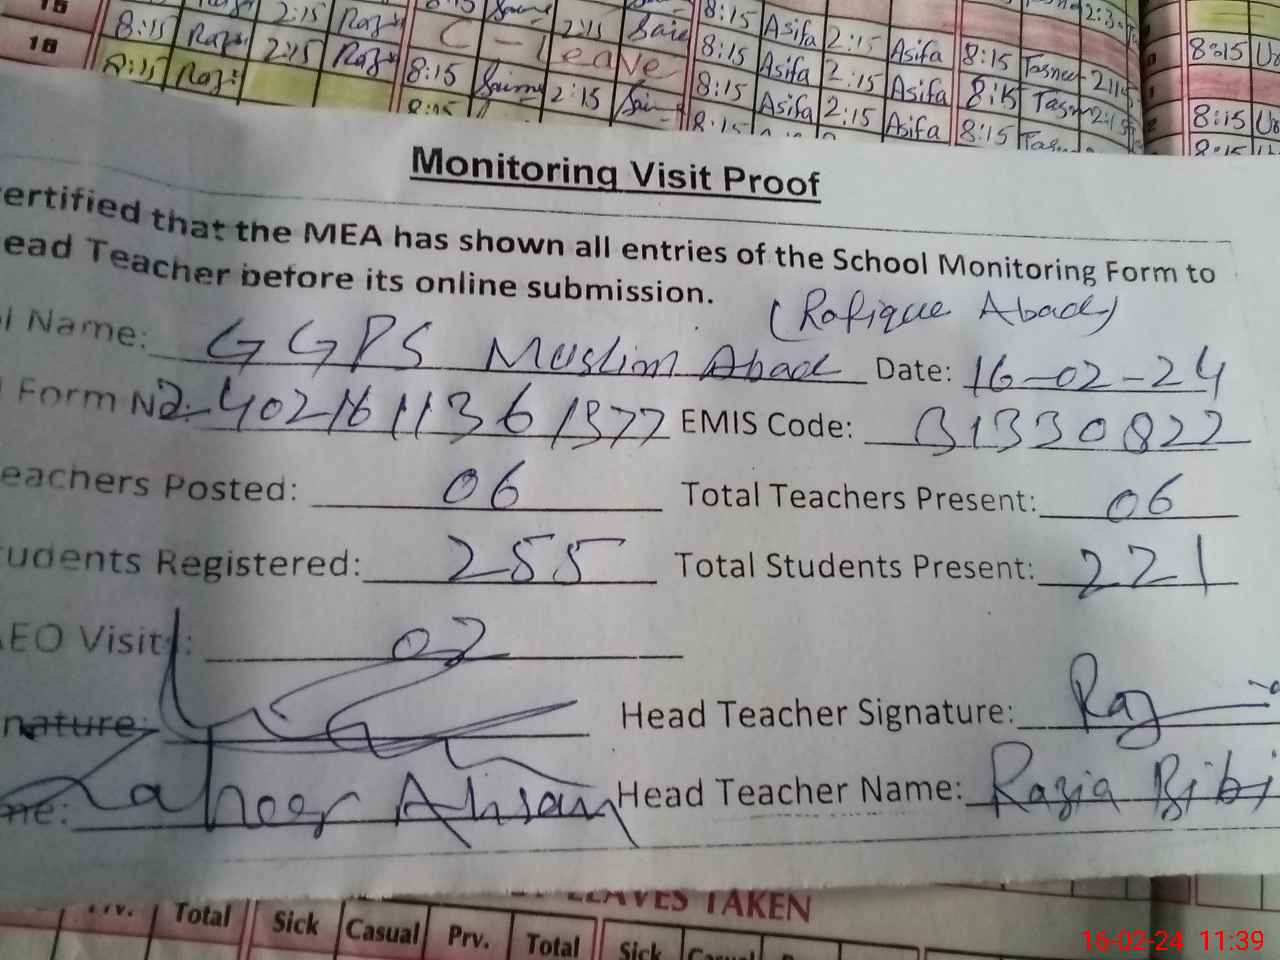 15 2:15 Raz 8:15 Saima 2:15 Saie 8:15 Asifa 2:15 Asifa 8:15 Tasnee 2:15
16 8:15 Razi 2:15 Raz C - Leave 8:15 Asifa 2:15 Asifa 8:15 Tasm 2:15 8:15
8:15 Razi 8:15 Saima 2:15 8:15 Asifa 2:15 Asifa 8:15 8:15
Monitoring Visit Proof
ertified that the MEA has shown all entries of the School Monitoring Form to
ead Teacher before its online submission.
(Rafique Abad)
l Name: GGPS Muslim Abad Date: 16-02-24
Form No. 24021611361377 EMIS Code: 31330822
eachers Posted: 06 Total Teachers Present: 06
udents Registered: 255 Total Students Present: 221
AEO Visit: 02
nature: Head Teacher Signature: Raz
me: Zaheer Ahsan Head Teacher Name: Razia Bibi
LEAVES TAKEN
Prv. Total Sick Casual Prv. Total Sick Casual
16-02-24 11:39